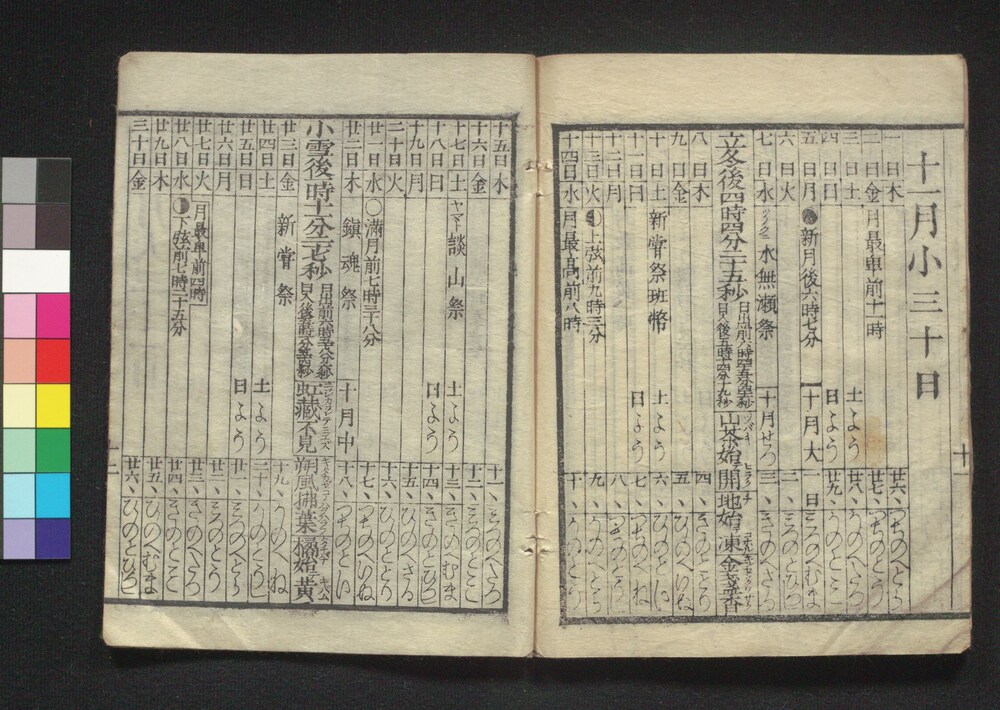 十一月小三十日
一日木 廿六、つちのへとら
二日金 月最卑前十一時 廿七、つちのとう
三日土 土よう 廿八、かのへたつ
四日日 日よう 廿九、かのとミ
五日月 新月後六時七分 十月大 一日 ミつのへむま
六日火 二、ミつのとひつし
七日水 水無瀬祭 十月せつ 三、きのへさる
立冬後四時四分二十五秒 山茶始開 地始凍 金盞香
八日木 四、きのとのとり
九日金 五、ひのへいぬ
十日土 新嘗祭班幣 土よう 六、ひのとゐ
十一日日 日よう 七、つちのへね
十二日月 八、つちのとうし
十三日火 上弦前九時三分 九、かのへとら
十四日水 月最高前八時 十、かのとう
十一
十五日木 十一、ミつのへたつ
十六日金 十二、ミつのとミ
十七日土 ヤマト 談山祭 土よう 十三、きのへむま
十八日日 日よう 十四、きのとひつし
十九日月 十五、ひのへさる
二十日火 十六、ひのととり
廿一日水 満月前七時三十八分 十七、つちのへいぬ
廿二日木 鎮魂祭 十月中 十八、つちのとゐ
小雪後一時十一分 虹蔵不見 朔風払葉 橘始黄
廿三日金 新嘗祭 十九、かのへね
廿四日土 土よう 二十、かのとうし
廿五日日 日よう 廿一、ミつのへとら
廿六日月 廿二、ミつのとう
廿七日火 月最卑前四時 廿三、きのへたつ
廿八日水 下弦前七時二十五分 廿四、きのとミ
廿九日木 廿五、ひのへむま
三十日金 廿六、ひのとひつし